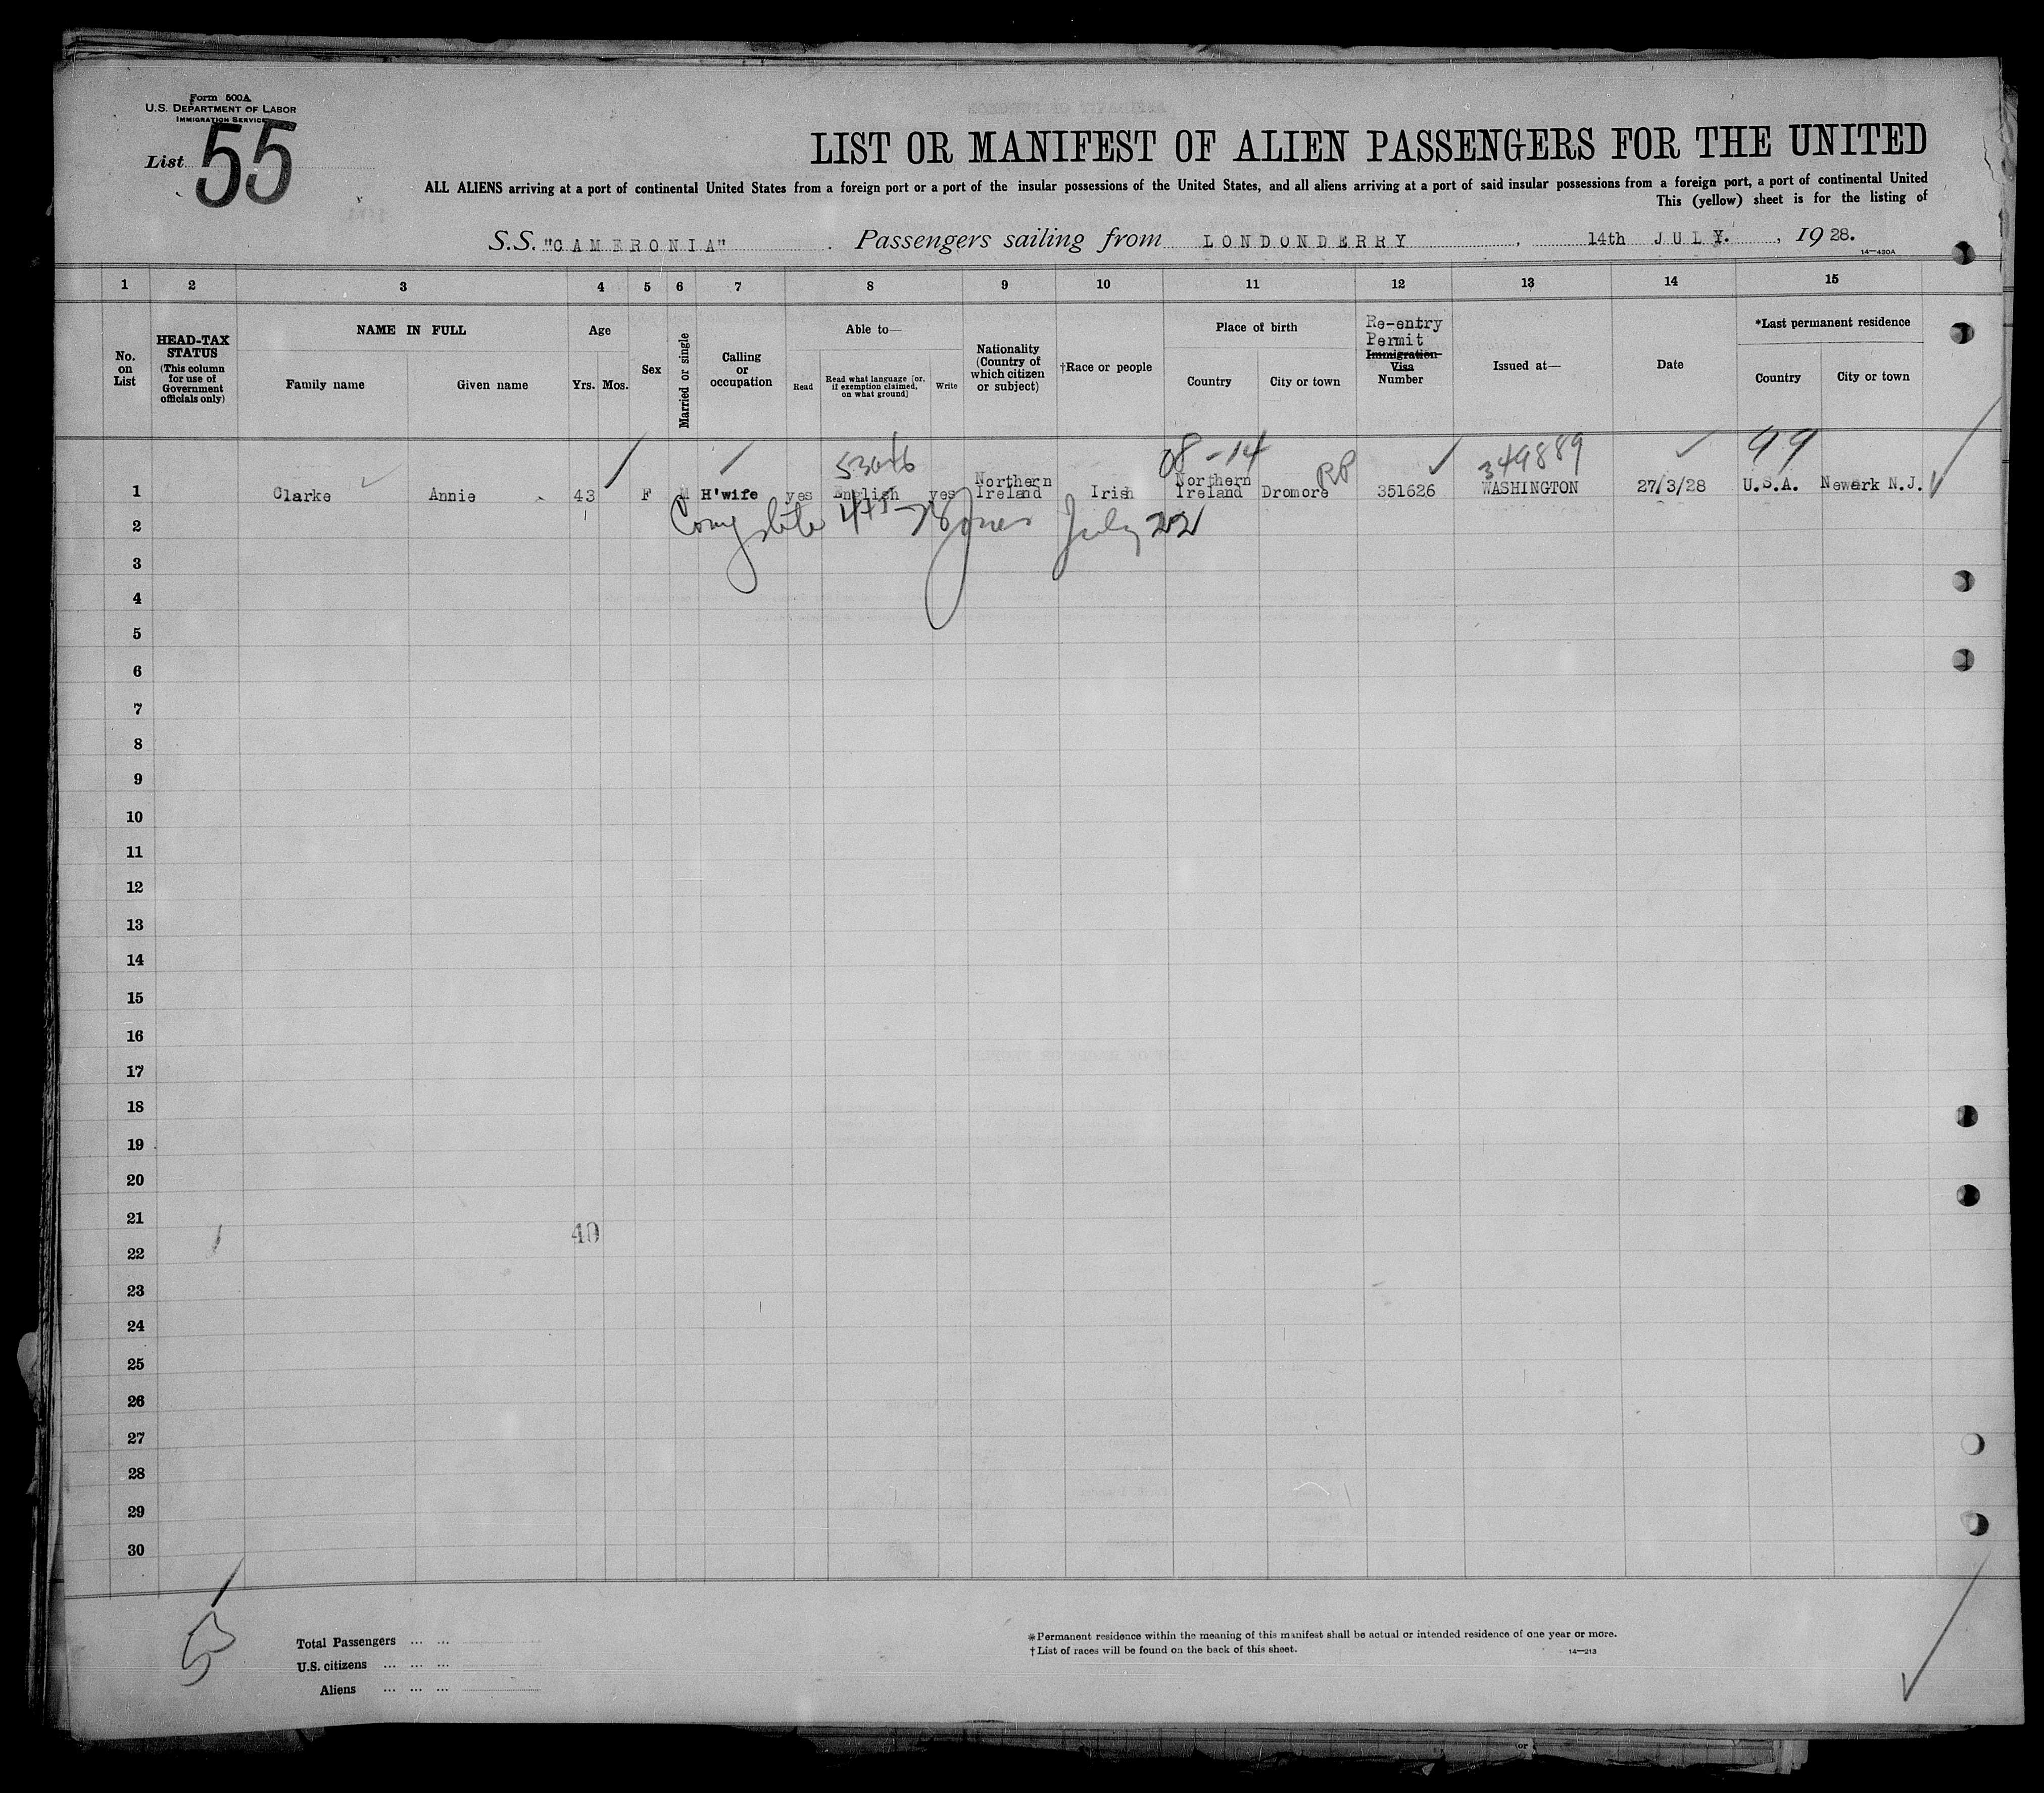 Form 500A
U.S. DEPARTMENT OF LABOR
IMMIGRATION SERVICE
List 55
LIST OR MANIFEST OF ALIEN PASSENGERS FOR THE UNITED
ALL ALIENS arriving at a port of continental United States from a foreign port or a port of the insular possessions of the United States, and all aliens arriving at a port of said insular possessions from a foreign port, a port of continental United
This (yellow) sheet is for the listing of
S.S. "CAMERONIA" Passengers sailing from LONDONDERRY, 14th JULY., 1928.
14—430A
1 2 3 4 5 6 7 8 9 10 11 12 13 14 15
No. on List
HEAD-TAX STATUS (This column for use of Government officials only)
NAME IN FULL
Family name Given name
Age
Yrs. Mos.
Sex
Married or single
Calling or occupation
Able to—
Read
Read what language [or, if exemption claimed, on what ground]
Write
Nationality (Country of which citizen or subject)
†Race or people
Place of birth
Country City or town
Re-entry Permit
Immigration Visa Number
Issued at—
Date
*Last permanent residence
Country City or town
08-14 RP 349889 99
1 Clarke Annie 43 F M H'wife yes English yes Northern Ireland Irish Northern Ireland Dromore 351626 WASHINGTON 27/3/28 U.S.A. Newark N.J.
July
2
3
4
5
6
7
8
9
10
11
12
13
14
15
16
17
18
19
20
21
40
22
23
24
25
26
27
28
29
30
Total Passengers ... ...
U.S. citizens ... ... ...
Aliens ... ... ...
*Permanent residence within the meaning of this manifest shall be actual or intended residence of one year or more.
†List of races will be found on the back of this sheet.
14—213